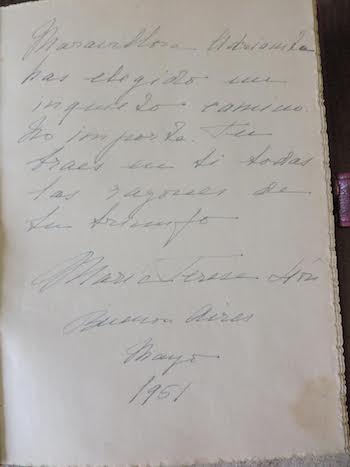 Maravillosa Adrianita
has elegido un
inquieto camino.
No importa. Tu
traes en ti todas
las razones de
tu triunfo
María Teresa León
Buenos Aires
Mayo
1951